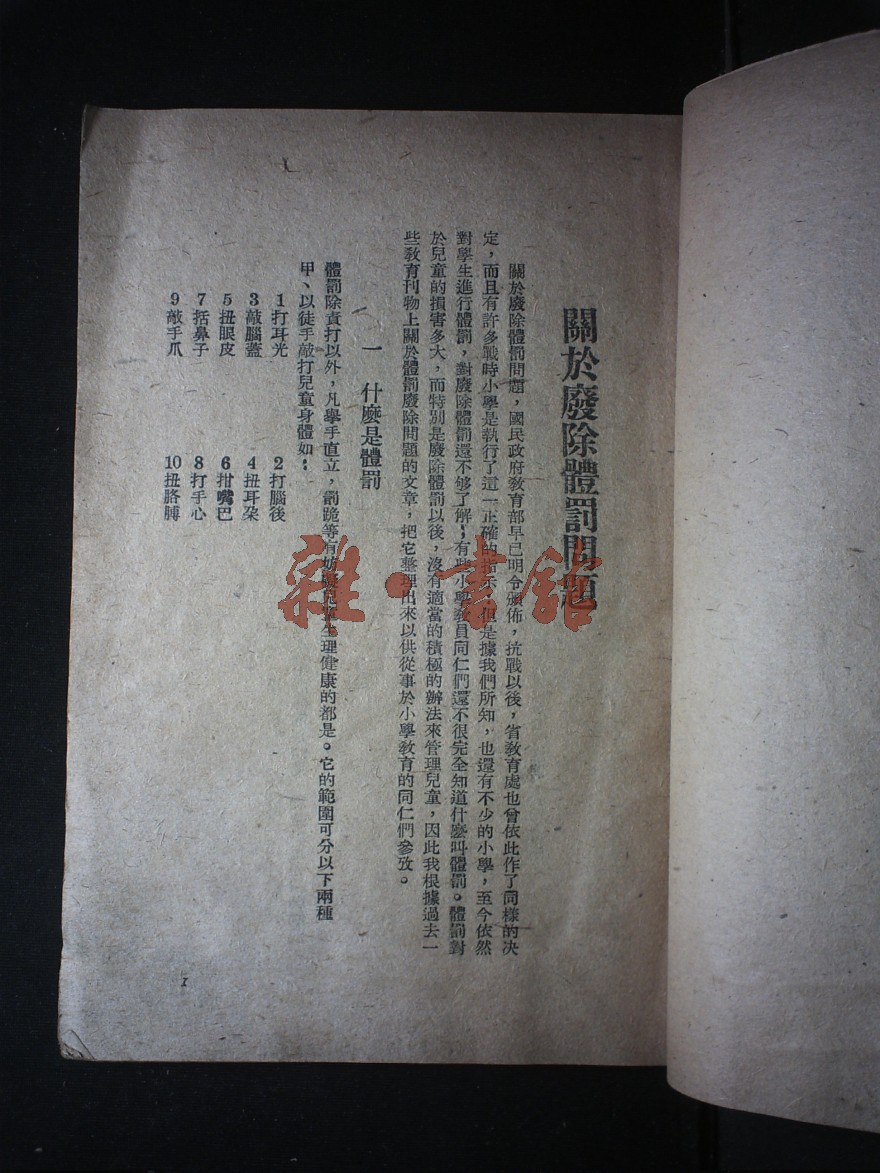 關於廢除體罰問題
關於廢除體罰問題，國民政府教育部早已明令頒佈，抗戰以後，省教育處也曾依此作了同樣的决
定，而且有許多戰時小學是執行了這一正確的指示，但是據我們所知，也還有不少的小學，至今依然
對學生進行體罰，對廢除體罰還不够了解；有些小學教員同仁們還不很完全知道什麼叫體罰。體罰對
於兒童的損害多大，而特別是廢除體罰以後，沒有適當的積極的辦法來管理兒童，因此我根據過去一
些教育刊物上關於體罰廢除問題的文章，把它整理出來以供從事於小學教育的同仁們參攷。
一 什麼是體罰
體罰除責打以外，凡舉手直立，罰跪等有妨礙兒童生理健康的都是。它的範圍可分以下兩種
甲、以徒手敲打兒童身體如：
1打耳光 2打腦後
3敲腦蓋 4扭耳朶
5扭眼皮 6拑嘴巴
7括鼻子 8打手心
9敲手爪 10扭胳膊
1
雜·書館